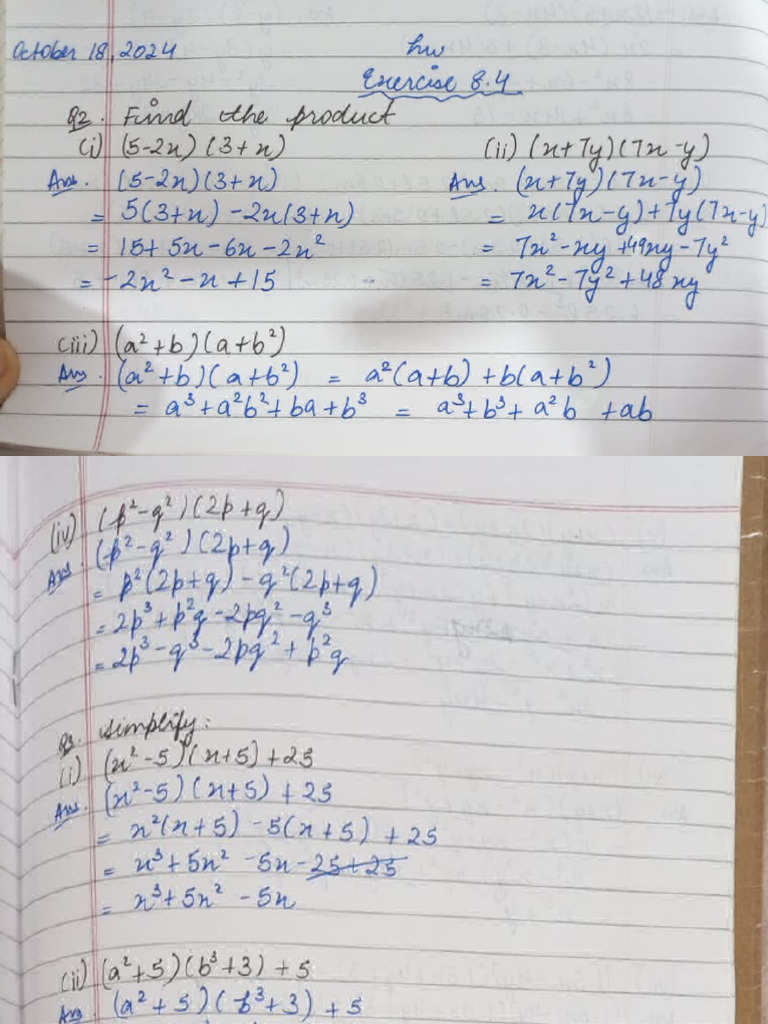 October 18, 2024
hw
Exercise 8.4
Q2. Find the product
(i) (5-2x) (3+x)
Ans. (5-2x)(3+x)
= 5(3+x) -2x(3+x)
= 15+5x-6x-2x²
= -2x²-x+15
(ii) (x+7y)(7x-y)
Ans (x+7y)(7x-y)
= x(7x-y)+7y(7x-y)
= 7x²-xy+49xy-7y²
= 7x²-7y²+48xy
(iii) (a²+b)(a+b²)
Ans. (a²+b)(a+b²) = a²(a+b)+b(a+b²)
= a³+a²b²+ba+b³ = a³+b³+a²b +ab
(iv) (p²-q²)(2p+q)
Ans. (p²-q²)(2p+q)
= p²(2p+q) - q²(2p+q)
= 2p³+p²q-2pq²-q³
= 2p³-q³-2pq²+p²q
Q3. Simplify:
(i) (x²-5)(x+5)+25
Ans. (x²-5)(x+5)+25
= x²(x+5) -5(x+5) +25
= x³+5x² -5x-25+25
= x³+5x² -5x
(ii) (a²+5)(b³+3)+5
Ans. (a²+5)(b³+3)+5